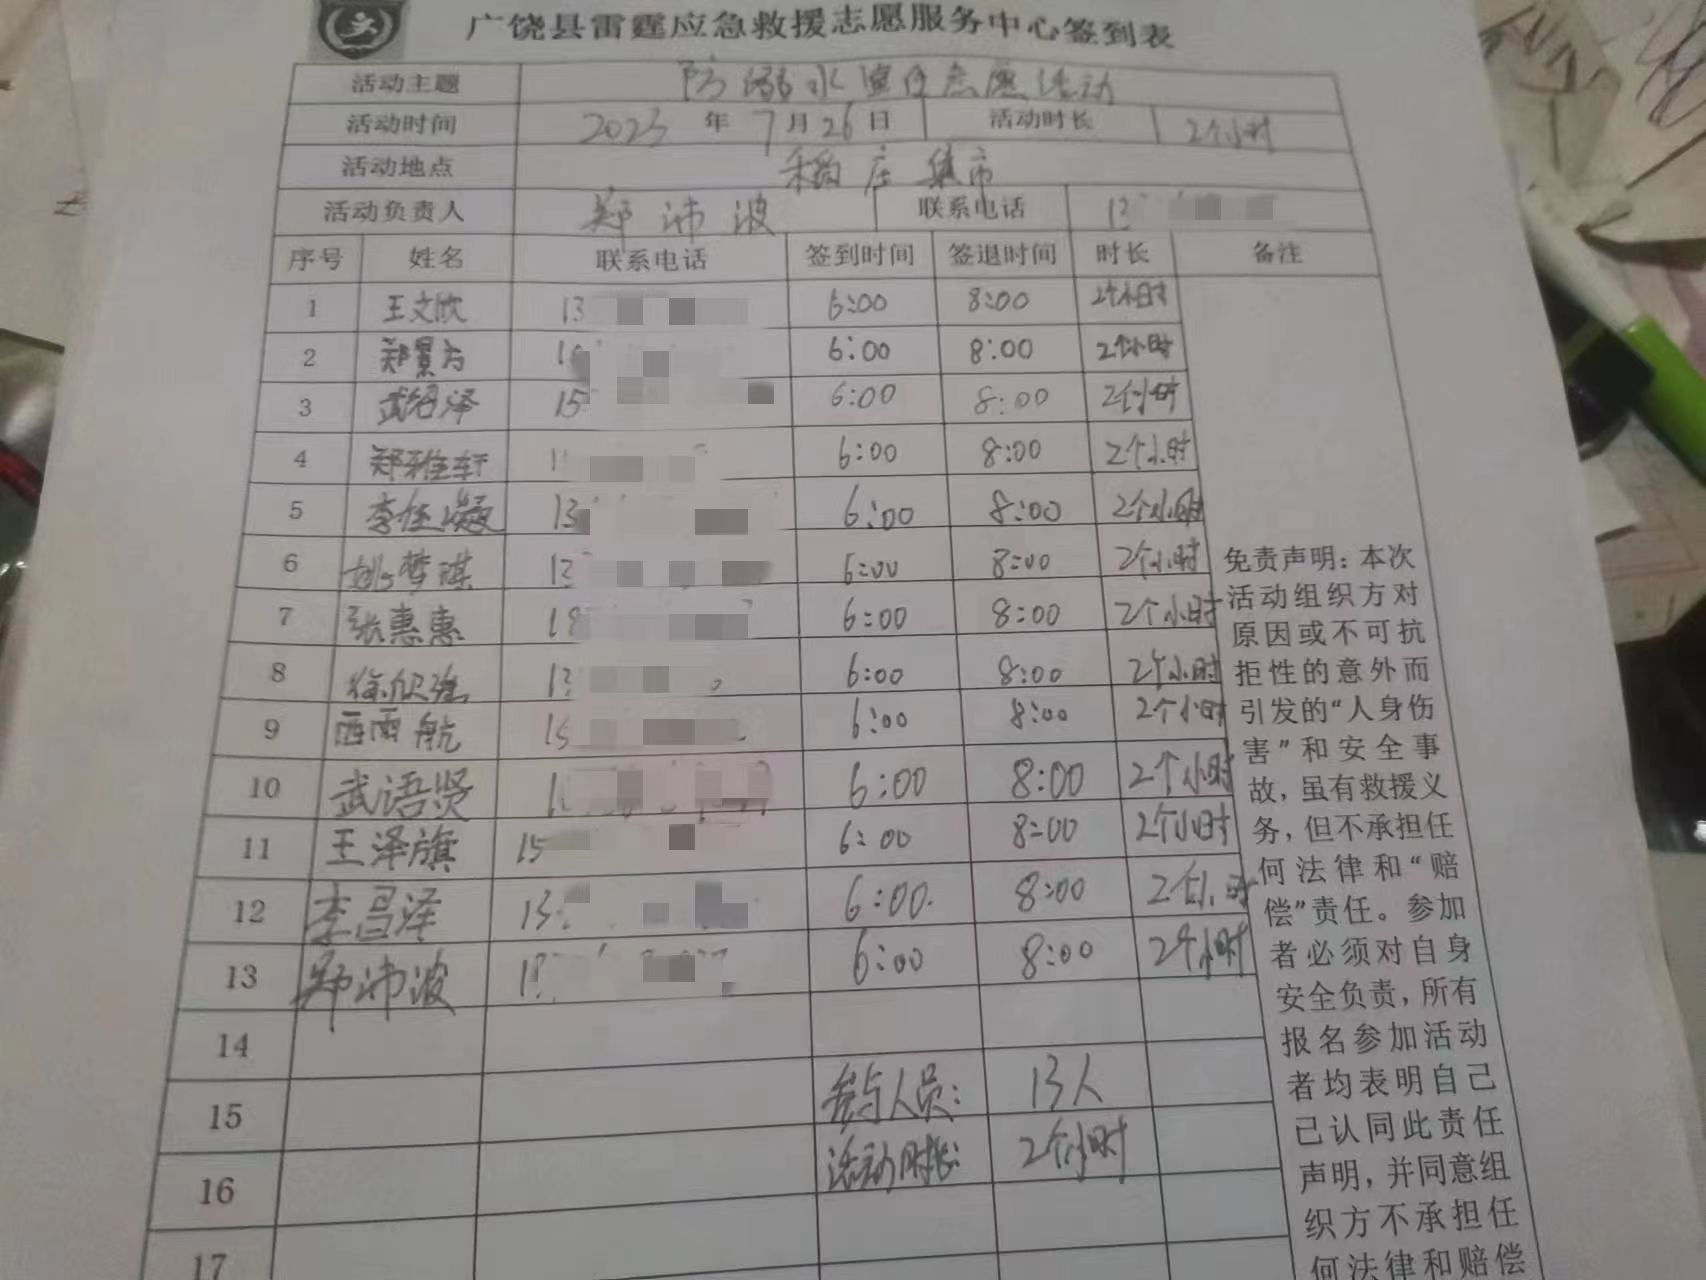 广饶县雷霆应急救援志愿服务中心签到表
活动主题 防溺水宣传志愿活动
活动时间 2023年7月26日 活动时长 2个小时
活动地点 稻庄集市
活动负责人 郑沛波 联系电话 13
序号 姓名 联系电话 签到时间 签退时间 时长 备注
1 王文欣 13 6:00 8:00 2个小时
2 郑景方 6:00 8:00 2个小时
3 武绍泽 15 6:00 8:00 2个小时
4 郑雅轩 6:00 8:00 2个小时
5 李任凝 13 6:00 8:00 2个小时
6 姚梦琪 13 6:00 8:00 2个小时
7 张惠惠 18 6:00 8:00 2个小时
8 6:00 8:00 2个小时
9 西雨航 15 6:00 8:00 2个小时
10 武语贤 6:00 8:00 2个小时
11 王泽旗 15 6:00 8:00 2个小时
12 李昌泽 13 6:00. 8:00 2个小时
13 郑沛波 6:00 8:00 2个小时
14
15 参与人员: 13人
16 活动时长: 2个小时
17
免责声明：本次
活动组织方对
原因或不可抗
拒性的意外而
引发的“人身伤
害”和安全事
故，虽有救援义
务，但不承担任
何法律和“赔
偿”责任。参加
者必须对自身
安全负责，所有
报名参加活动
者均表明自己
已认同此责任
声明，并同意组
织方不承担任
何法律和赔偿